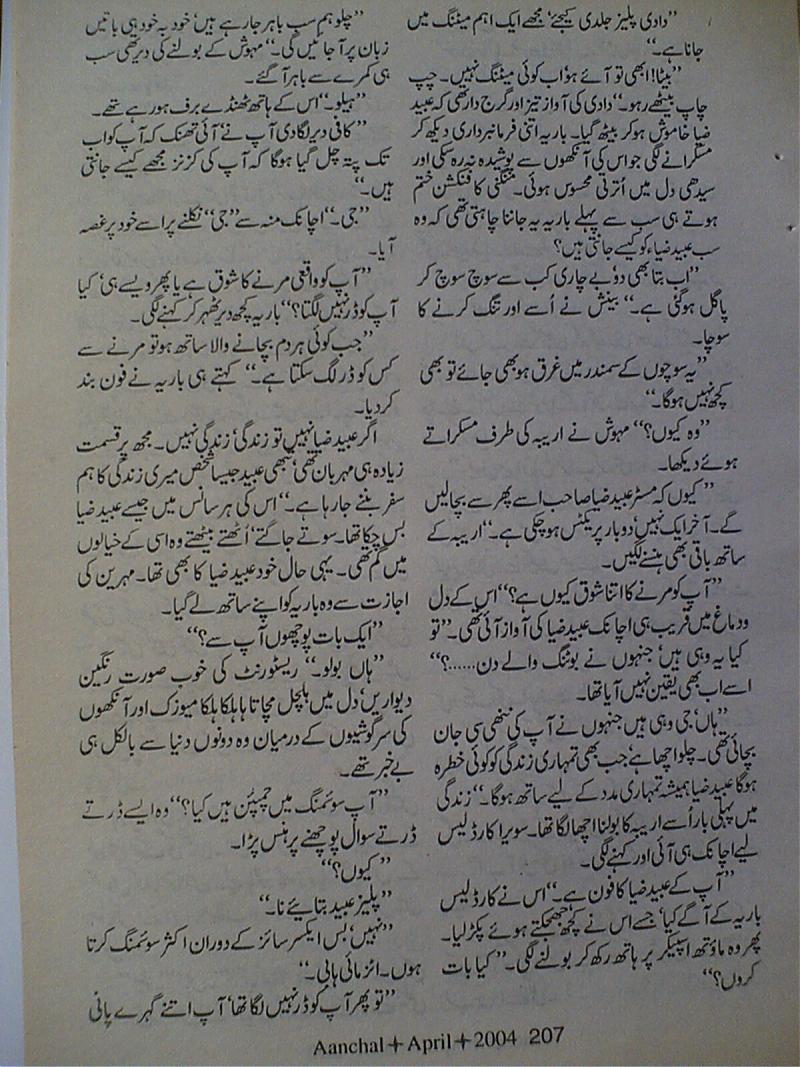 ”دادی پلیز جلدی کیجئے‘ مجھے ایک اہم میٹنگ میں
جانا ہے۔“
”بیٹا! ابھی تو آئے ہو‘ اب کوئی میٹنگ نہیں۔ چپ
چاپ بیٹھے رہو۔“ دادی کی آواز تیز اور گرج دار تھی کہ عبید
ضیا خاموش ہوکر بیٹھ گیا۔ باریہ اتنی فرمانبرداری دیکھ کر
مسکرانے لگی جو اس کی آنکھوں سے پوشیدہ نہ رہ سکی اور
سیدھی دل میں اُترتی محسوس ہوئی۔ منگنی کا فنکشن ختم
ہوتے ہی سب سے پہلے باریہ یہ جاننا چاہتی تھی کہ وہ
سب عبید ضیاء کو کیسے جانتی ہیں؟
”اب بتا بھی دو‘ بے چاری کب سے سوچ سوچ کر
پاگل ہوگئی ہے۔“ بینش نے اُسے اور تنگ کرنے کا
سوچا۔
”یہ سوچوں کے سمندر میں غرق ہو بھی جائے تو بھی
کچھ نہیں ہوگا۔“
”وہ کیوں؟“ مہوش نے اریبہ کی طرف مسکراتے
ہوئے دیکھا۔
”کیوں کہ مسٹر عبید ضیا صاحب اسے پھر سے بچالیں
گے۔ آخر ایک نہیں‘ دو بار پریکٹس ہوچکی ہے۔“ اریبہ کے
ساتھ باقی بھی ہنسنے لگیں۔
”آپ کو مرنے کا اتنا شوق کیوں ہے؟“ اس کے دل
ودماغ میں قریب ہی اچانک عبید ضیا کی آواز آئی تھی۔ ”تو
کیا یہ وہی ہیں‘ جنہوں نے بوٹنگ والے دن......؟“
اسے اب بھی یقین نہیں آیا تھا۔
”ہاں‘ جی وہی ہیں جنہوں نے آپ کی ننھی سی جان
بچائی تھی۔ چلو اچھا ہے‘ جب بھی تمہاری زندگی کو کوئی خطرہ
ہوگا عبید ضیا ہمیشہ تمہاری مدد کے لیے ساتھ ہوگا۔“ زندگی
میں پہلی بار اُسے اریبہ کا بولنا اچھا لگا تھا۔ سویرا کارڈلیس
لیے اچانک ہی آئی اور کہنے لگی۔
”آپ کے عبید ضیا کا فون ہے۔“ اس نے کارڈلیس
باریہ کے آگے کیا‘ جسے اس نے کچھ جھجکتے ہوئے پکڑلیا۔
پھر وہ ماؤتھ اسپیکر پر ہاتھ رکھ کر بولنے لگی۔ ”کیا بات
کروں؟“
”چلو ہم سب باہر جارہے ہیں‘ خود بہ خود ہی باتیں
زبان پر آجائیں گی۔“ مہوش کے بولنے کی دیر تھی سب
ہی کمرے سے باہر آگئے۔
”ہیلو۔“ اس کے ہاتھ ٹھنڈے برف ہورہے تھے۔
”کافی دیر لگادی آپ نے‘ آئی تھنک کہ آپ کو اب
تک پتہ چل گیا ہوگا کہ آپ کی کزنز مجھے کیسے جانتی
ہیں۔“
”جی۔“ اچانک منہ سے ”جی“ نکلنے پر اسے خود پر غصہ
آیا۔
”آپ کو واقعی مرنے کا شوق ہے یا پھر ویسے ہی‘ کیا
آپ کو ڈر نہیں لگتا؟“ باریہ کچھ دیر ٹھہر کر کہنے لگی۔
”جب کوئی ہردم بچانے والا ساتھ ہو تو مرنے سے
کس کو ڈر لگ سکتا ہے۔“ کہتے ہی باریہ نے فون بند
کردیا۔
اگر عبید ضیا نہیں تو زندگی‘ زندگی نہیں۔ مجھ پر قسمت
زیادہ ہی مہربان تھی‘ تبھی عبید جیسا شخص میری زندگی کا ہم
سفر بننے جارہا ہے۔“ اس کی ہر سانس میں جیسے عبید ضیا
بس چکا تھا۔ سوتے جاگتے‘ اُٹھتے بیٹھتے وہ اسی کے خیالوں
میں گم تھی۔ یہی حال خود عبید ضیا کا بھی تھا۔ مہرین کی
اجازت سے وہ باریہ کو اپنے ساتھ لے گیا۔
”ایک بات پوچھوں آپ سے؟“
”ہاں بولو۔“ ریسٹورنٹ کی خوب صورت رنگین
دیواریں‘ دل میں ہلچل مچاتا ہلکا ہلکا میوزک اور آنکھوں
کی سرگوشیوں کے درمیان وہ دونوں دنیا سے بالکل ہی
بے خبر تھے۔
”آپ سوئمنگ میں چمپئن ہیں کیا؟“ وہ ایسے ڈرتے
ڈرتے سوال پوچھنے پر ہنس پڑا۔
”کیوں؟“
”پلیز عبید بتایئے نا۔“
”نہیں‘ بس ایکسرسائز کے دوران اکثر سوئمنگ کرتا
ہوں۔ اٹز مائی ہابی۔“
”تو پھر آپ کو ڈر نہیں لگا تھا‘ آپ اتنے گہرے پانی
Aanchal✦April✦2004 207